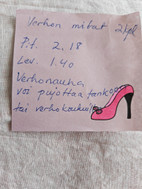 Verhon mitat 2 kpl
Pit. 2,18
Lev. 1.40
Verhonauha,
voi pujottaa tankoon
tai verhokoukuilla